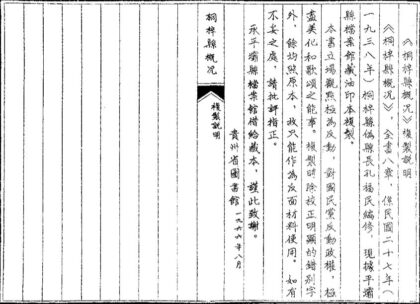 《桐梓縣概况》複製説明
《桐梓縣概况》,全書八章,係民國二十七年(
一九三八年)桐梓縣偽縣長孔福民編修,現據平壩
縣檔案館藏油印本複製。
本書立場觀點極為反動,對國民黨反動政權,極
盡美化和歌頌之能事。複製時除校正明顯的錯别字
外,餘均照原本,故只能作為反面材料使用。如有
不妥之處,請批評指正。
承平壩縣檔案館借給藏本,謹此致謝。
貴州省圖書館 一九六六年八月
複製説明
桐梓縣概况